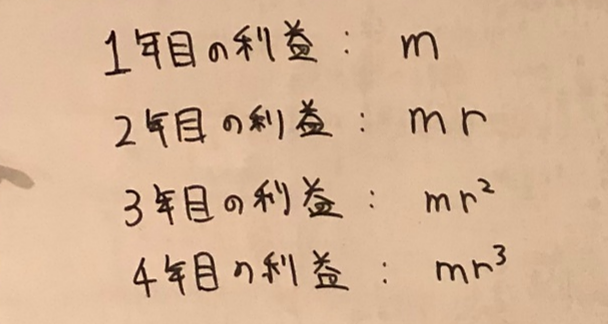 1年目の利益: m
2年目の利益: mr
3年目の利益: mr²
4年目の利益: mr³